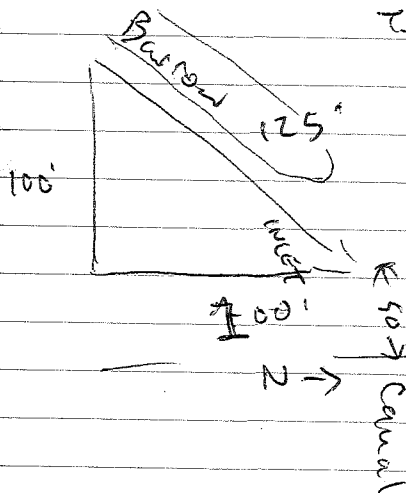 Barrow
125'
100'
INLET
100'
50
N →
Canal